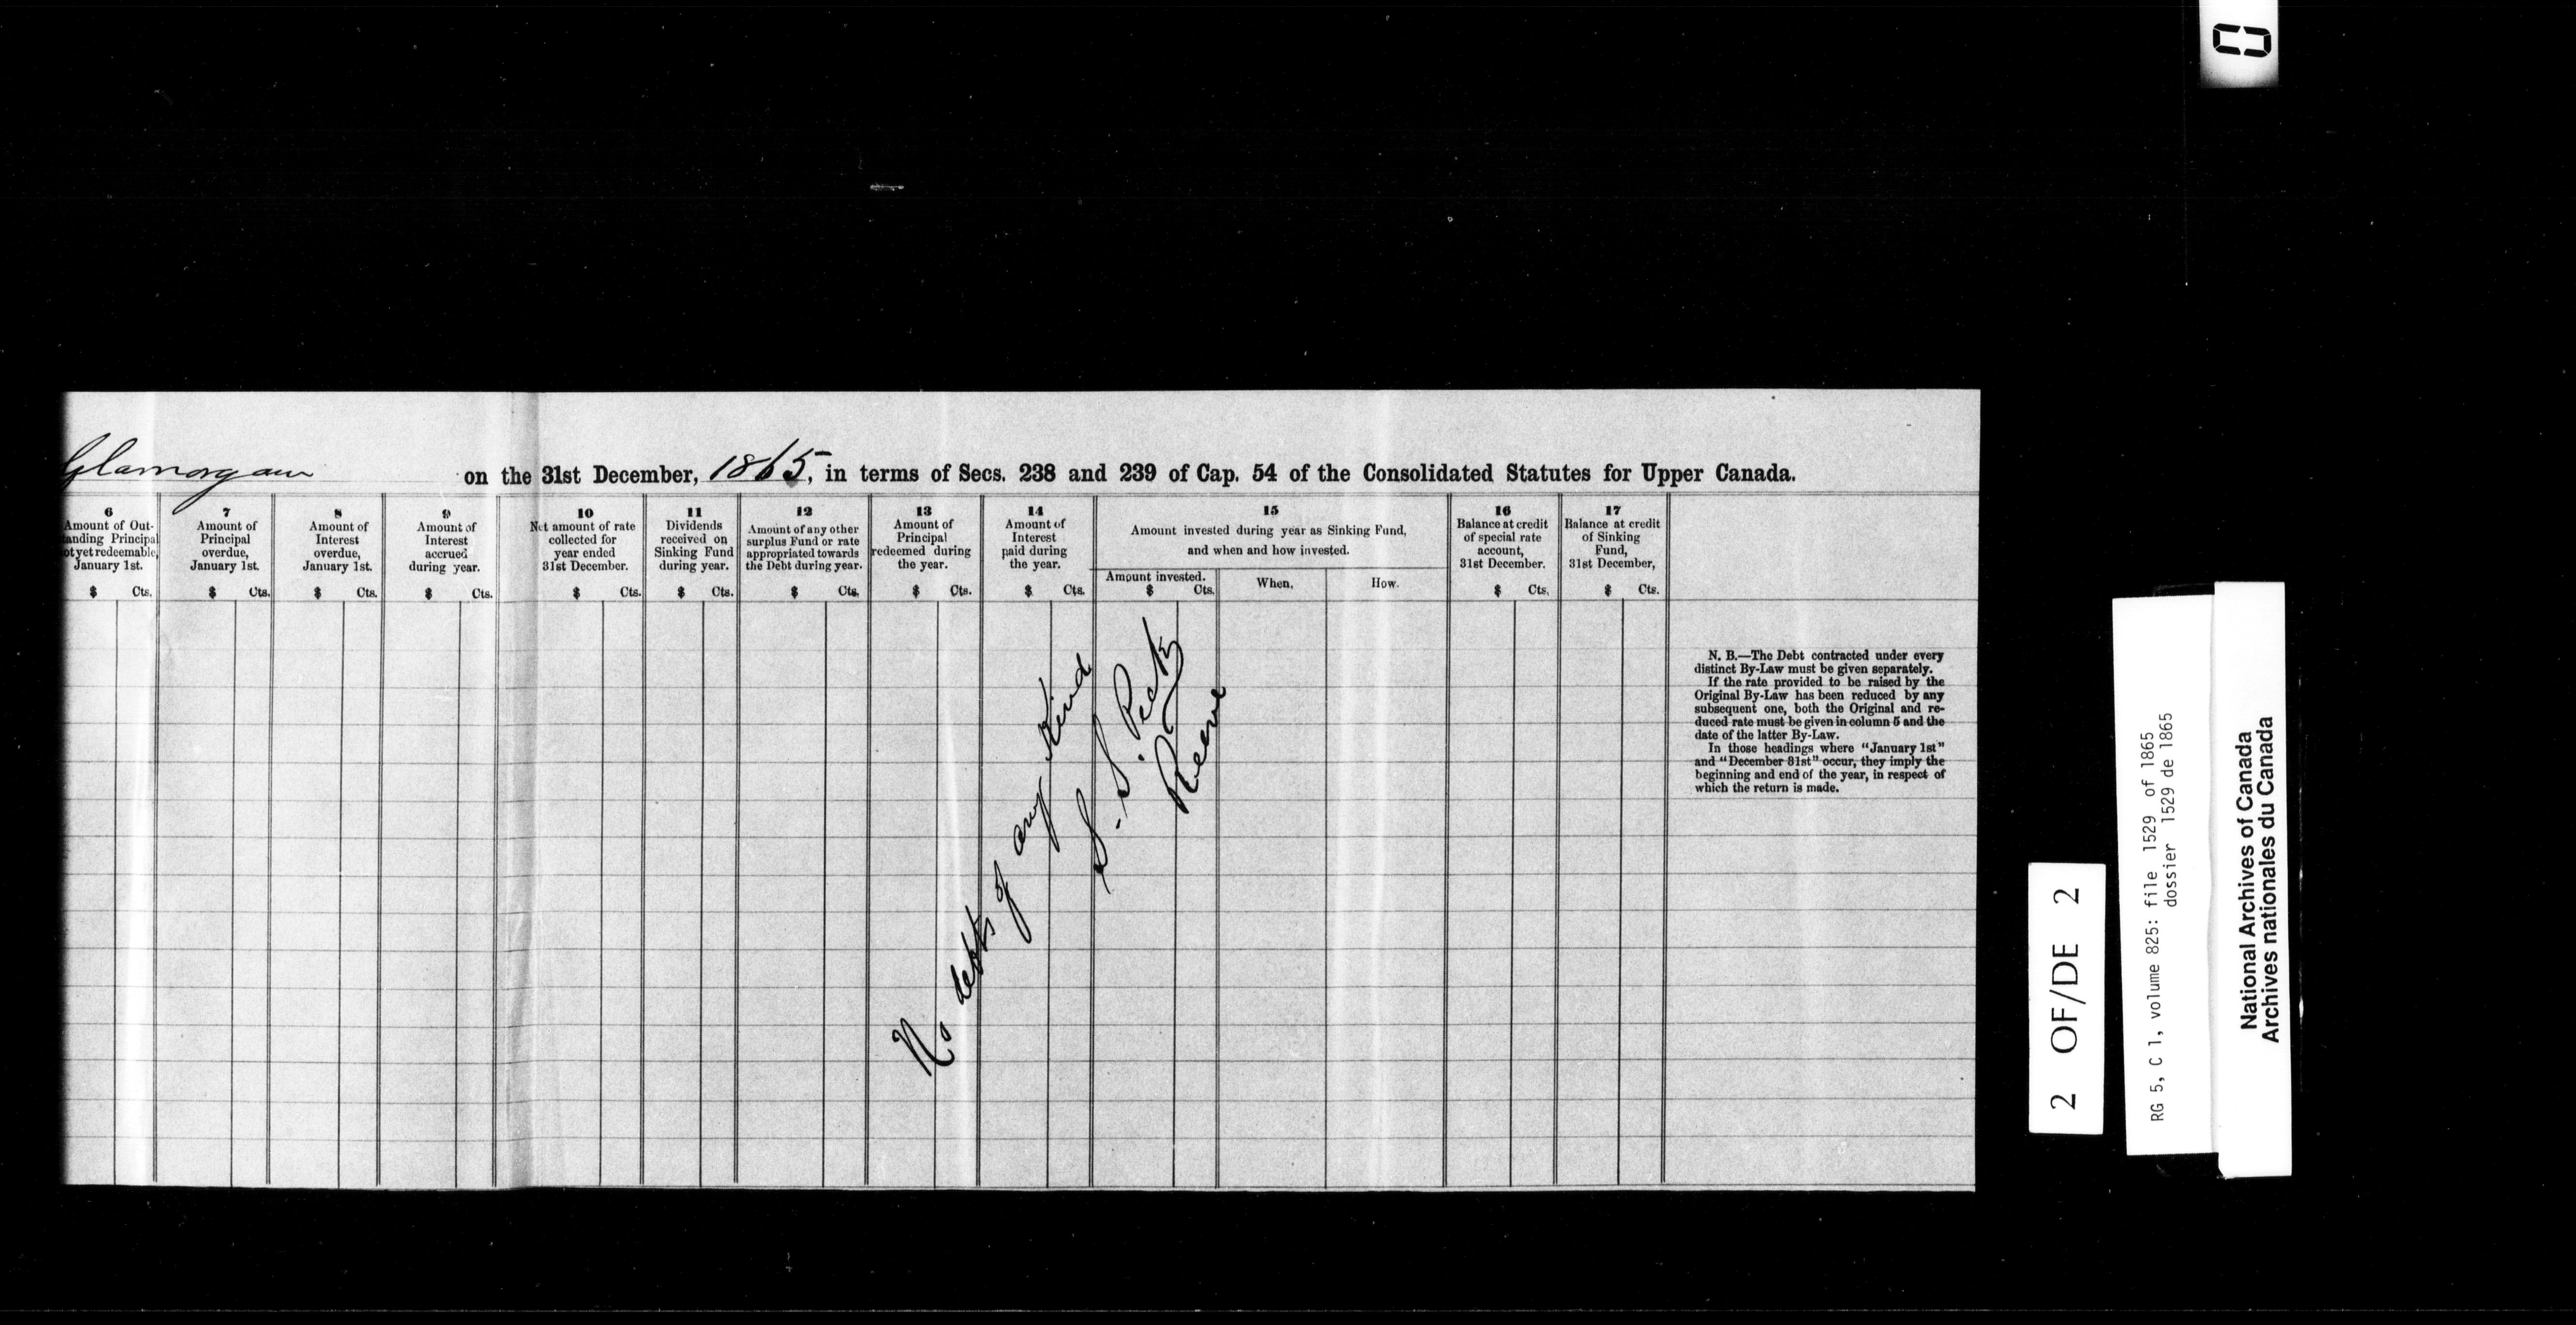 Glamorgan on the 31st December, 1865, in terms of Secs. 238 and 239 of Cap. 54 of the Consolidated Statutes for Upper Canada.
6
Amount of Out-
tanding Principal
ot yet redeemable,
January 1st.
$ Cts.
7
Amount of
Principal
overdue,
January 1st.
$ Cts.
8
Amount of
Interest
overdue,
January 1st.
$ Cts.
9
Amount of
Interest
accrued
during year.
$ Cts.
10
Net amount of rate
collected for
year ended
31st December.
$ Cts.
11
Dividends
received on
Sinking Fund
during year.
$ Cts.
12
Amount of any other
surplus Fund or rate
appropriated towards
the Debt during year.
$ Cts.
13
Amount of
Principal
redeemed during
the year.
$ Cts.
14
Amount of
Interest
paid during
the year.
$ Cts.
15
Amount invested during year as Sinking Fund,
and when and how invested.
Amount invested.
$ Cts.
When.
How.
16
Balance at credit
of special rate
account,
31st December.
$ Cts.
17
Balance at credit
of Sinking
Fund,
31st December,
$ Cts.
No debts of any Kind
S. S. Peck
Reeve
N. B.—The Debt contracted under every
distinct By-Law must be given separately.
If the rate provided to be raised by the
Original By-Law has been reduced by any
subsequent one, both the Original and re-
duced rate must be given in column 5 and the
date of the latter By-Law.
In those headings where "January 1st"
and "December 31st" occur, they imply the
beginning and end of the year, in respect of
which the return is made.
2 OF/DE 2
RG 5, C 1, volume 825: file 1529 of 1865
dossier 1529 de 1865
National Archives of Canada
Archives nationales du Canada